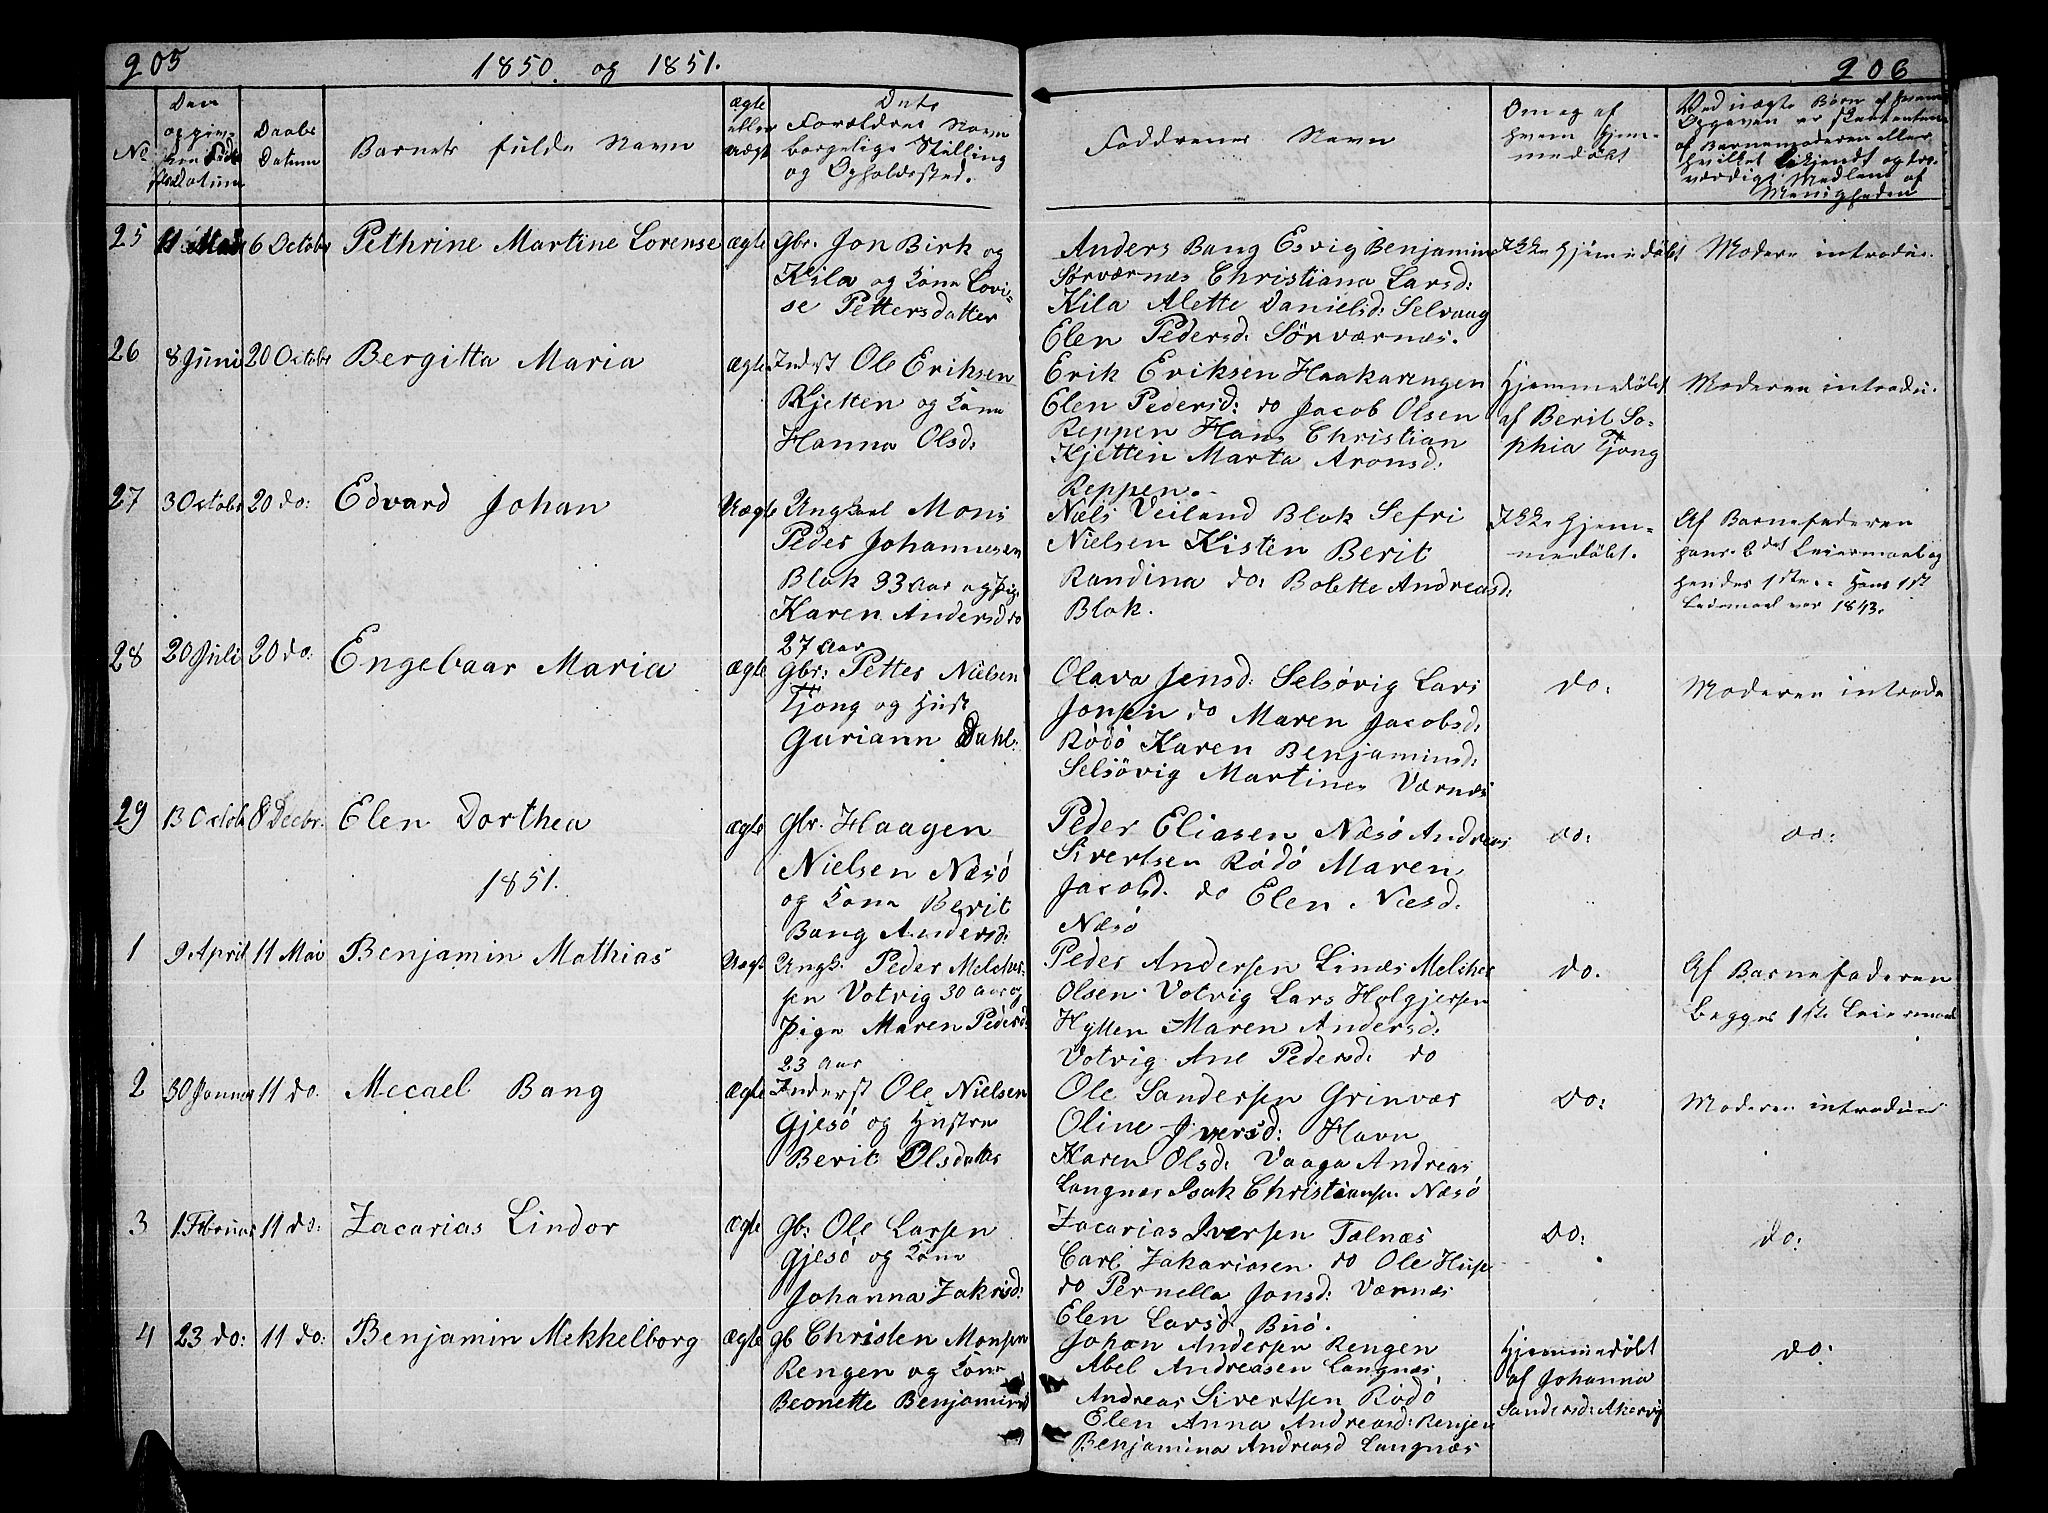 205
1850. og 1851.
206
No
Den
opgivne
Føds
Datum
Daabs
Datum
Barnets fulde Navn
ægte
eller
uægte
Dets
Forældres Navn
borgelige Stilling
og Opholdssted.
Faddrenes Navn
Om og af
hvem hjem-
medøbt
Ved uægte Børn af hvem
Opgaven er
af Barnemoderen eller
hvilket bekjendt og tro-
værdigt Medlem af
Menigheden
25 11 Mai 6 Octobr Pethrine Martine Lorense ægte Gbr. Jon Birk og
Kila og Kone Lovi-
se Pettersdatter
Anders Bang Esvig Benjamin
Sørværnæs Christiana Larsd:
Kila Alette Danielsd: Selvaag
Elen Pedersd: Sørværnæs.
Ikke hjemmedøbt
Moderen introdu.
26 8 Juni 20 Octobr Bergitta Maria ægte Inderst Ole Eriksen
Kjetten og Kone
Hanna Olsd:
Erik Eriksen Haakarengen
Elen Pedersd: do Jacob Olsen
Reppen Hans Christian
Kjetten Marta Aronsd:
Reppen.
Hjemmedøbt
af Berit So-
phia Tjong
Moderen introdu.
27 3 Octobr 20 do: Edvard Johan Uægte Ungkarl Mons
Peder Johannesen
Blok 33 Aar og Pig.
Karen Andersd do
27 Aar
Nils Veiland Blok Sefri
Nielsen Kisten Berit
Randina do: Bolette Andreasd:
Blok.
Ikke hjem-
medøbt.
Af Barnefaderen
hans Leiermaal og
hendes 1ste. Hans 1ste
Leiermaal var 1843.
28 20 Juli 20 do: Engebaar Maria ægte Gbr: Petter Nielsen
Tjong og Hust
Guriann Dahl.
Olava Jensd: Selsøvig Lars
Jonsen do Maren Jacobsd:
Rødø Karen Benjaminsd:
Selsøvig Martines Værnæs
do:
Moderen introdu
29 13 Octob 8 Decbr. Elen Dorthea ægte Gbr. Haagen
Nielsen Næsø
og Kone Berit
Bang Andersd:
Peder Eliasen Næsø Andreas
Sivertsen Rødø Maren
Jacobsd. do Elen Nilsd.
Næsø
do:
do:
1851.
1 9 April 11 Mai Benjamin Mathias Uægt Ungk. Peder Melcher-
sen Votvig 30 Aar og
Pige Maren Pedersd:
23 Aar
Peder Andersen Linæs Melcher
Olsen Votvig Lars Holgjersen
Hytten Maren Andersd:
Votvig Ane Pedersd: do
do.
Af Barnefaderen
Begges 1ste Leiermaal
2 30 Januar 11 do. Mecael Bang ægte Inderst Ole Nielsen
Gjesø og Hustru
Berit Olsdatter
Ole Sandersen Grinvær
Oline Iversd: Havn
Karen Olsd: Vaaga Andreas
Langnæs Isak Christiansen Næsø
do:
Moderen introdu
3 1 Februar 11 do: Zacarias Lindor ægte Gb: Ole Larsen
Gjesø og Kone
Johanna Zakrisd:
Zacarias Iversen Tælnæs
Carl Zakariasen do Ole
do Pernella Jonsd: Værnæs
Elen Larsd Buø.
do:
do:
4 23 do: 11 do: Benjamin Mekkelborg ægte gb Christen Monsen
Rengen og Kone
Beonette Benjaminsd
Johan Andersen Rengen
Abel Andreasen Langnæs
Andreas Sivertsen Rødø
Elen Anna Andreasd: Renjen
Benjamina Andreasd Langnæs
Hjemmedøbt
af Johanna
Sandersd: Akervig
do: